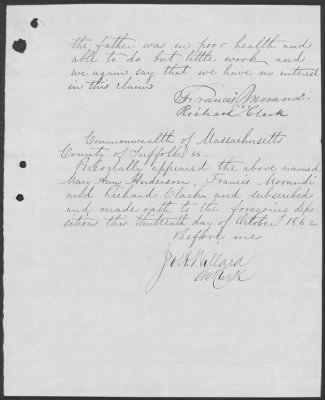 the father was in poor health and
able to do but little work and
we again say that we have no interest
in this claim
Francis Morandi
Richard Clark
Commonwealth of Massachusetts
County of Suffolk ss
Personally appeared the above named
Mary Ann Anderson, Francis Morandi
and Richard Clark and subscribed
and made oath to the foregoing depo
sitions this thirteenth day of October 1862
Before me
Jos. A. Willard
Clerk